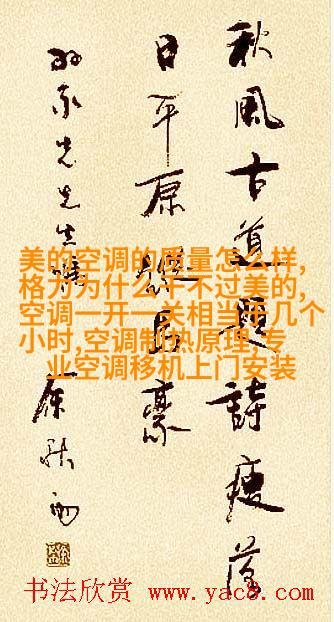 秋風古道題詩瘦落
日平原縱馬豪
先生
美的空调的质量怎么样,
格力为什么干不过美的,
空调一开一关相当于几个
小时,空调制热原理,专
业空调移机上门安装
书法欣赏 www.yac8.com